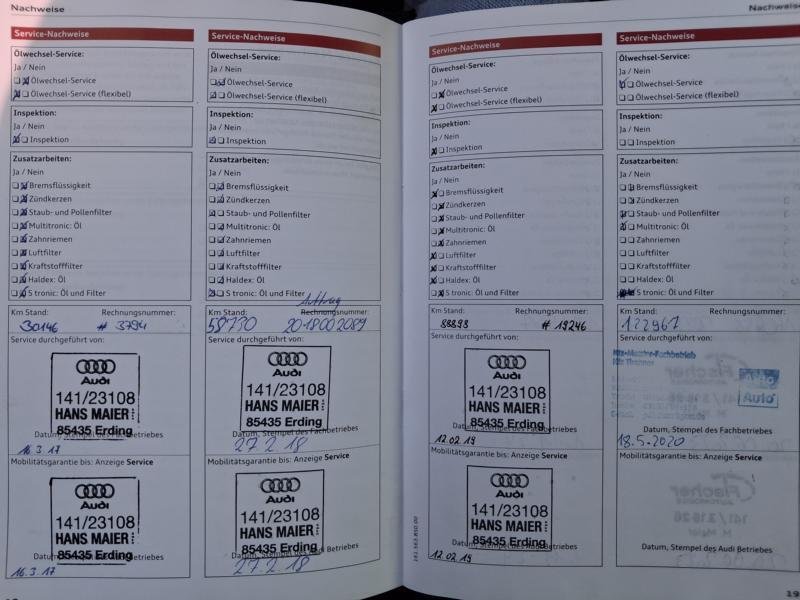 Nachweise
Service-Nachweise
Ölwechsel-Service:
Ja / Nein
Ölwechsel-Service
Ölwechsel-Service (flexibel)
Inspektion:
Ja / Nein
Inspektion
Zusatzarbeiten:
Ja / Nein
Bremsflüssigkeit
Zündkerzen
Staub- und Pollenfilter
Multitronic: Öl
Zahnriemen
Luftfilter
Kraftstofffilter
Haldex: Öl
S tronic: Öl und Filter
Km Stand: Rechnungsnummer:
30146 # 3794
Service durchgeführt von:
Audi
141/23108
HANS MAIER
85435 Erding
Datum, Stempel des Fachbetriebes
16.3.17
Mobilitätsgarantie bis: Anzeige Service
Audi
141/23108
HANS MAIER
85435 Erding
Datum, Stempel des Audi Betriebes
16.3.17
Service-Nachweise
Ölwechsel-Service:
Ja / Nein
Ölwechsel-Service
Ölwechsel-Service (flexibel)
Inspektion:
Ja / Nein
Inspektion
Zusatzarbeiten:
Ja / Nein
Bremsflüssigkeit
Zündkerzen
Staub- und Pollenfilter
Multitronic: Öl
Zahnriemen
Luftfilter
Kraftstofffilter
Haldex: Öl
S tronic: Öl und Filter
Auftrag
Km Stand: Rechnungsnummer:
58730 2018002089
Service durchgeführt von:
Audi
141/23108
HANS MAIER
85435 Erding
Datum, Stempel des Fachbetriebes
27.2.18
Mobilitätsgarantie bis: Anzeige Service
Audi
141/23108
HANS MAIER
85435 Erding
Datum, Stempel des Audi Betriebes
27.2.18
Nachweise
Service-Nachweise
Ölwechsel-Service:
Ja / Nein
Ölwechsel-Service
Ölwechsel-Service (flexibel)
Inspektion:
Ja / Nein
Inspektion
Zusatzarbeiten:
Ja / Nein
Bremsflüssigkeit
Zündkerzen
Staub- und Pollenfilter
Multitronic: Öl
Zahnriemen
Luftfilter
Kraftstofffilter
Haldex: Öl
S tronic: Öl und Filter
Km Stand: Rechnungsnummer:
88893 # 19246
Service durchgeführt von:
Audi
141/23108
HANS MAIER
85435 Erding
Datum, Stempel des Fachbetriebes
12.02.19
Mobilitätsgarantie bis: Anzeige Service
Audi
141/23108
HANS MAIER
85435 Erding
Datum, Stempel des Audi Betriebes
12.02.19
Service-Nachweise
Ölwechsel-Service:
Ja / Nein
Ölwechsel-Service
Ölwechsel-Service (flexibel)
Inspektion:
Ja / Nein
Inspektion
Zusatzarbeiten:
Ja / Nein
Bremsflüssigkeit
Zündkerzen
Staub- und Pollenfilter
Multitronic: Öl
Zahnriemen
Luftfilter
Kraftstofffilter
Haldex: Öl
S tronic: Öl und Filter
Km Stand: Rechnungsnummer:
122961
Service durchgeführt von:
Kfz-Meister-Fachbetrieb
Datum, Stempel des Fachbetriebes
18.5.2020
Mobilitätsgarantie bis: Anzeige Service
Datum, Stempel des Audi Betriebes
19